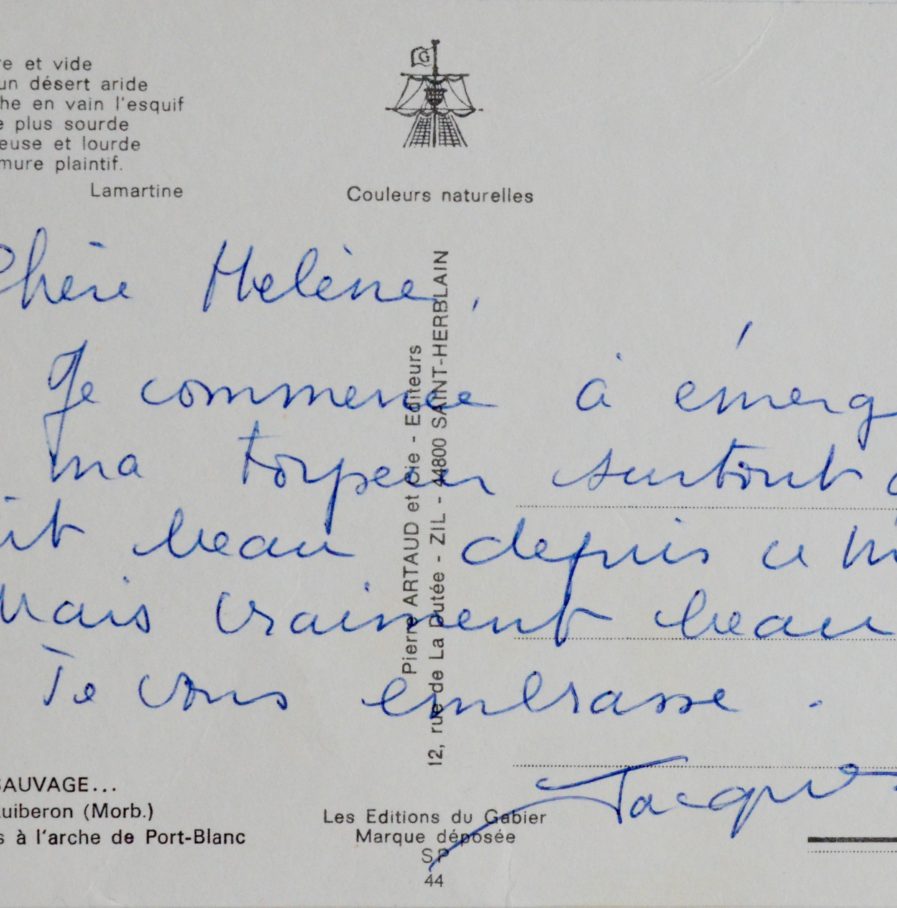 re et vide
un désert aride
he en vain l'esquif
e plus sourde
euse et lourde
mure plaintif.
Lamartine
G
Couleurs naturelles
Chère Helène,
Je commence à émerg
ma torpeur surtout
it beau depuis ce
Mais vraiment beau
Je vous embrasse.
Jacques
Pierre ARTAUD et Cie - Editeurs
12, rue de La Dutée - ZIL - 44800 SAINT-HERBLAIN
SAUVAGE...
uiberon (Morb.)
s à l'arche de Port-Blanc
Les Editions du Gabier
Marque déposée
SP
44